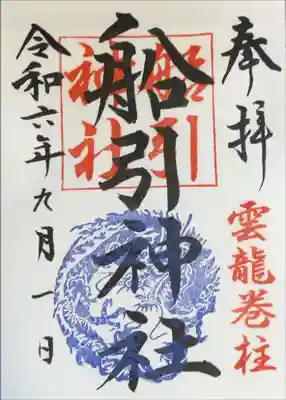 奉拝
雲龍巻柱
船引神社
船引
神社
令和六年九月一日